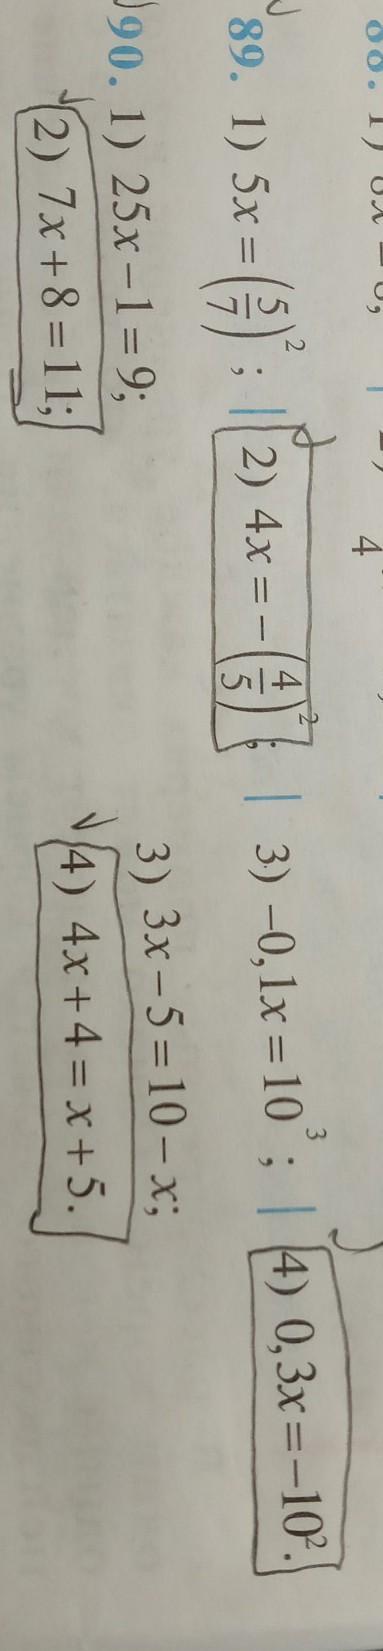 89. 1) 5x = (5/7)²; | 2) 4x = −(4/5)²; | 3) −0,1x = 10³; | 4) 0,3x = −10².
90. 1) 25x − 1 = 9; 3) 3x − 5 = 10 − x;
2) 7x + 8 = 11; 4) 4x + 4 = x + 5.